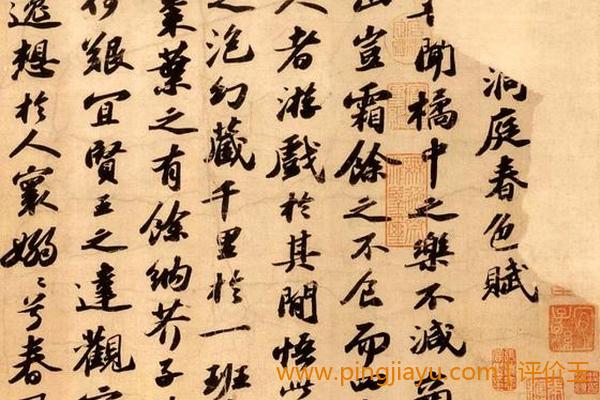 洞庭春色賦
聞橘中之樂不減商
山豈霜餘之不食而四
人者游戲於其間悟此
之泡幻藏千里於一班
棗葉之有餘納芥子
何艱宜賢王之達觀寄
逸想於人寰嫋〻兮春
www.pingjiayu.com 评价王